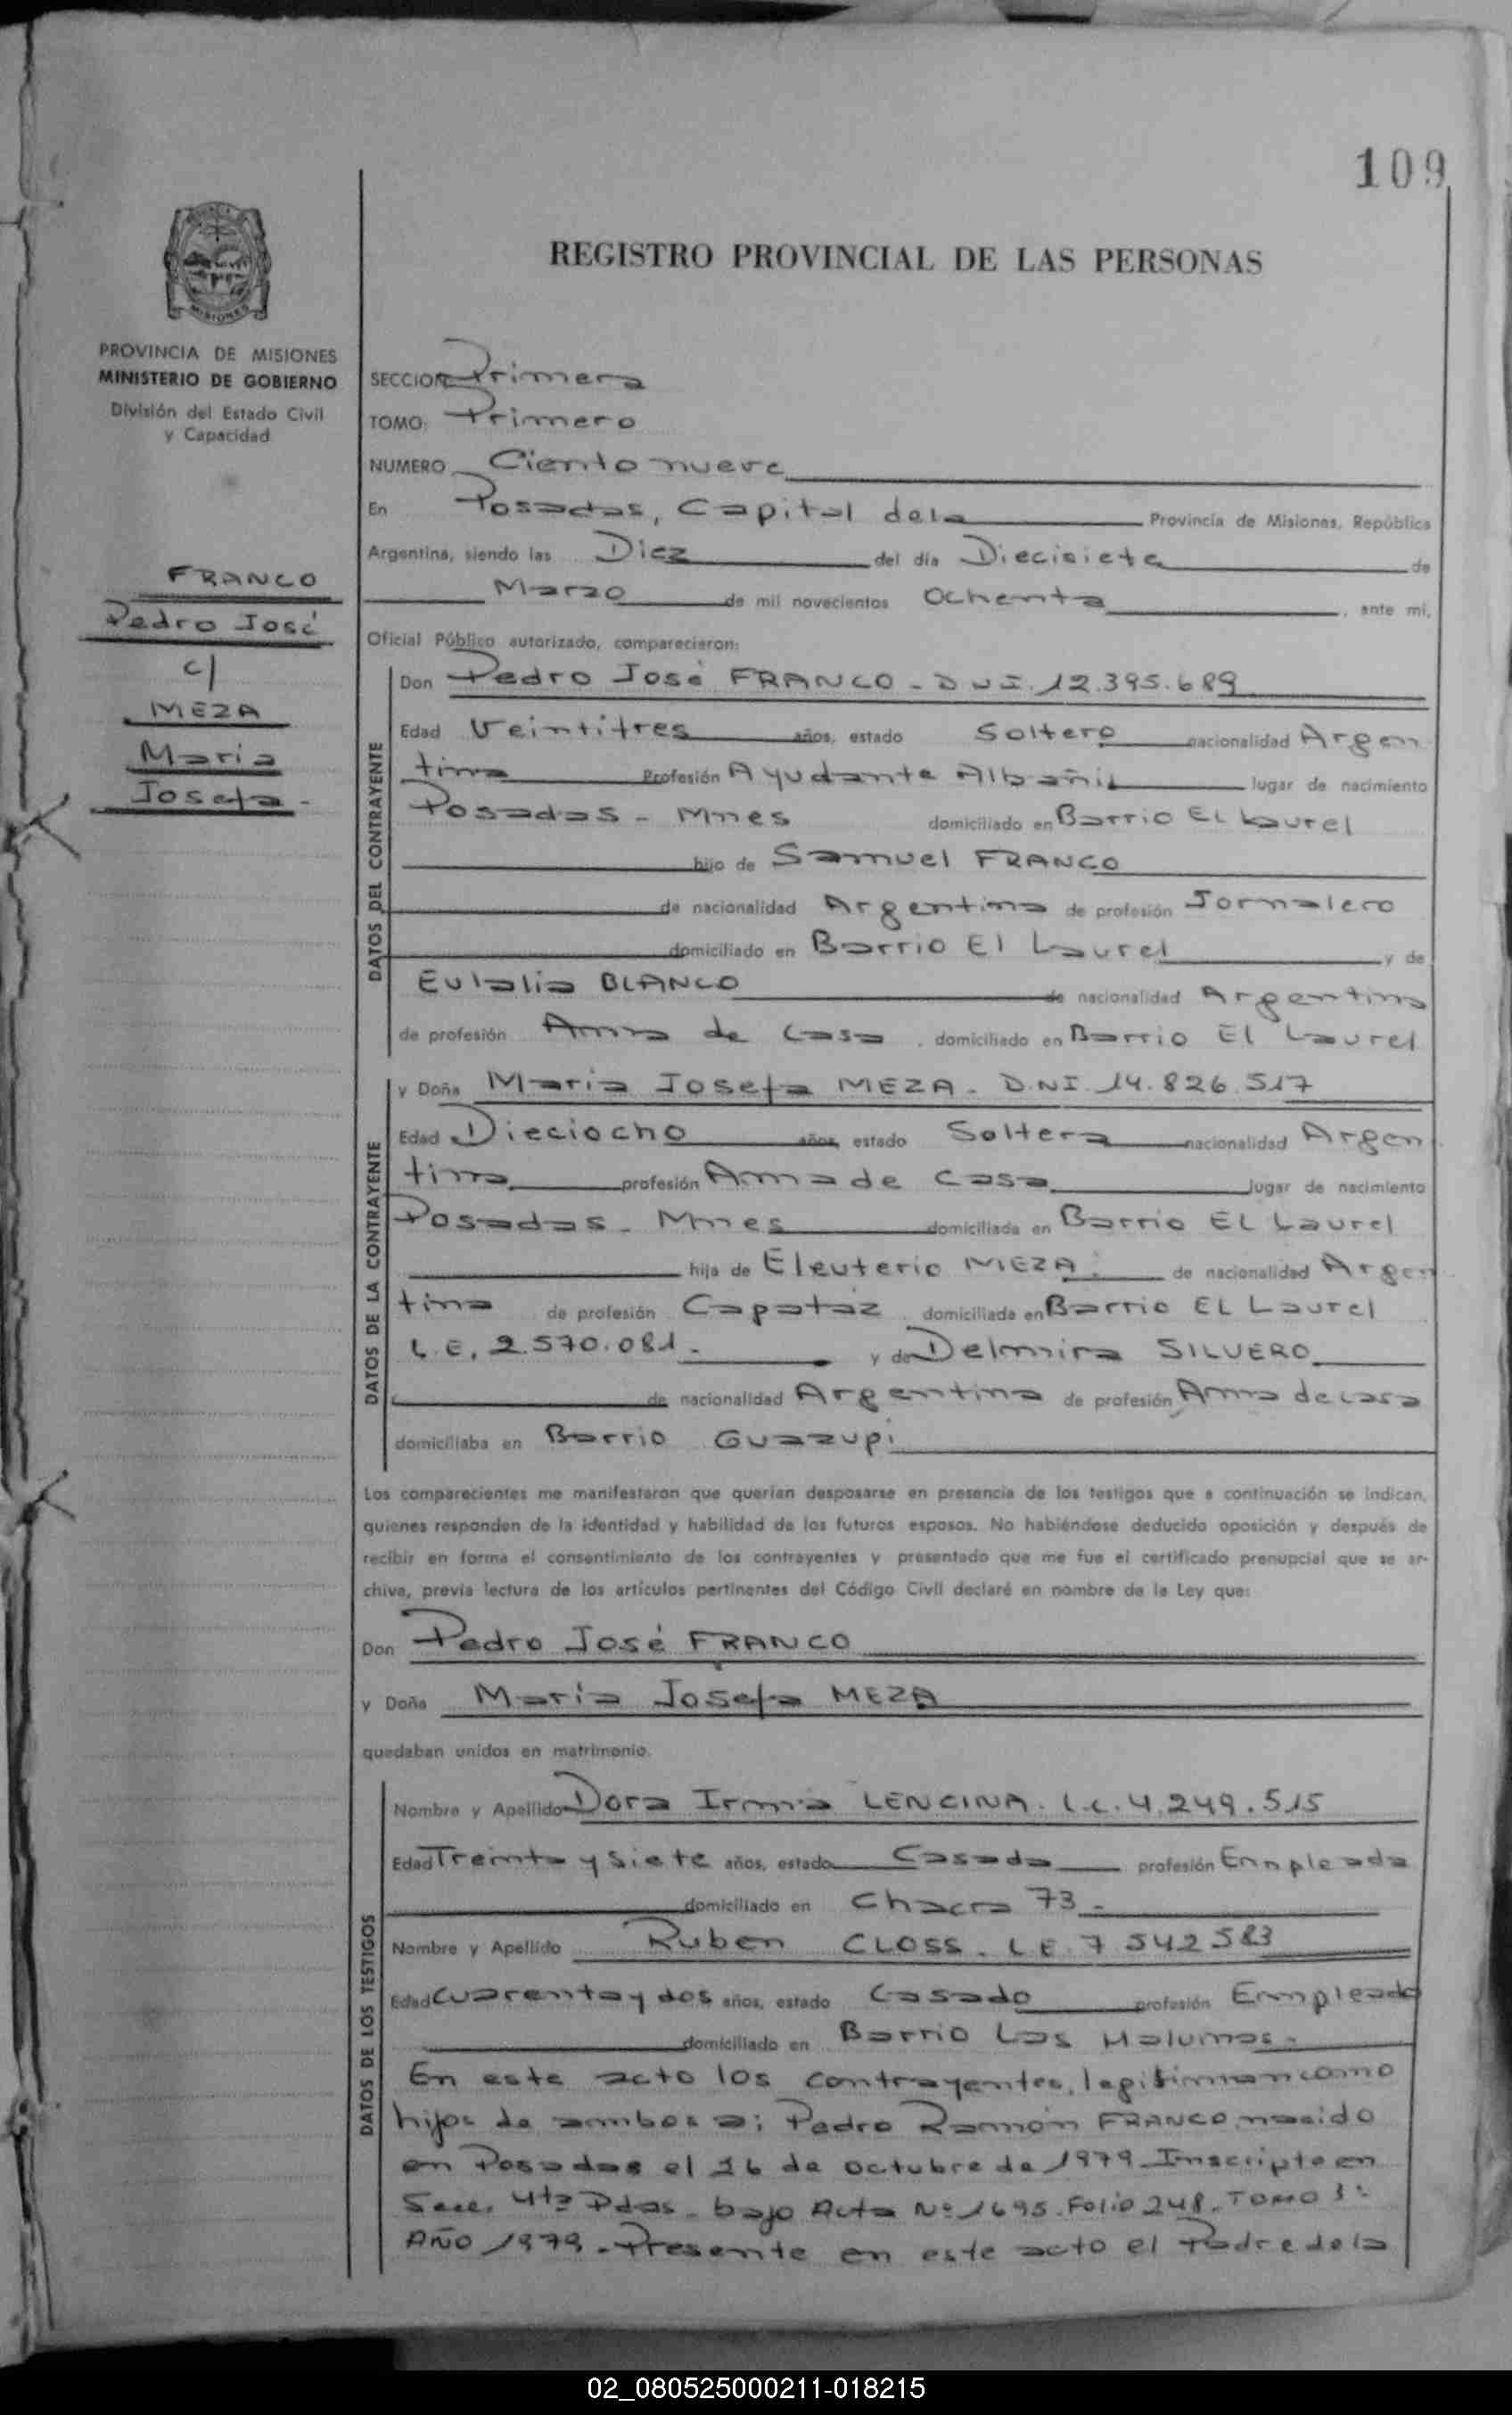 109
REGISTRO PROVINCIAL DE LAS PERSONAS
MISIONES
PROVINCIA DE MISIONES
MINISTERIO DE GOBIERNO
División del Estado Civil
y Capacidad
FRANCO
Pedro José
c/
MEZA
Maria
Josefa -
SECCION Primera
TOMO: Primero
NUMERO Ciento nueve
En Posadas, Capital de la Provincia de Misiones, República
Argentina, siendo las Diez del día Diecisiete de
Marzo de mil novecientos Ochenta, ante mi,
Oficial Público autorizado, comparecieron:
DATOS DEL CONTRAYENTE
Don Pedro José FRANCO - DNI. 12.395.689
Edad Veintitres años, estado Soltero nacionalidad Argen
tina Profesión Ayudante Albañil lugar de nacimiento
Posadas - Mnes domiciliado en Barrio El Laurel
hijo de Samuel FRANCO
de nacionalidad Argentina de profesión Jornalero
domiciliado en Barrio El Laurel y de
Eulalia BLANCO de nacionalidad Argentina
de profesión Ama de Casa, domiciliado en Barrio El Laurel
DATOS DE LA CONTRAYENTE
y Doña Maria Josefa MEZA - D.N.I. 14.826.517
Edad Dieciocho años, estado Soltera nacionalidad Argen
tina profesión Ama de Casa lugar de nacimiento
Posadas - Mnes domiciliada en Barrio EL Laurel
hija de Eleuterio MEZA. de nacionalidad Argen
tina de profesión Capataz domiciliada en Barrio EL Laurel
L.E. 2.570.081. y de Delmira SILVERO
de nacionalidad Argentina de profesión Ama de casa
domiciliaba en Barrio Guazupi
Los comparecientes me manifestaron que querían desposarse en presencia de los testigos que a continuación se indican,
quienes responden de la identidad y habilidad de los futuros esposos. No habiéndose deducido oposición y después de
recibir en forma el consentimiento de los contrayentes y presentado que me fue el certificado prenupcial que se ar-
chiva, previa lectura de los artículos pertinentes del Código Civil declaré en nombre de la Ley que:
Don Pedro José FRANCO
y Doña Maria Josefa MEZA
quedaban unidos en matrimonio.
DATOS DE LOS TESTIGOS
Nombre y Apellido Dora Irma LENCINA. L.C. 4.249.515
Edad Treinta y Siete años, estado Casada profesión Empleada
domiciliado en Chacra 73 -
Nombre y Apellido Ruben CLOSS. LE. 7 542 583
Edad Cuarenta y dos años, estado Casado profesión Empleado
domiciliado en Barrio Las Malvinas.
En este acto los contrayentes, legitiman como
hijos de ambos a; Pedro Ramón FRANCO nacido
en Posadas el 16 de octubre de 1979 Inscripto en
Secc. 4ta Pdas - bajo Acta Nº 1695. Folio 248. TOMO 3º
AÑO 1979. Presente en este acto el Padre de la
02_080525000211-018215